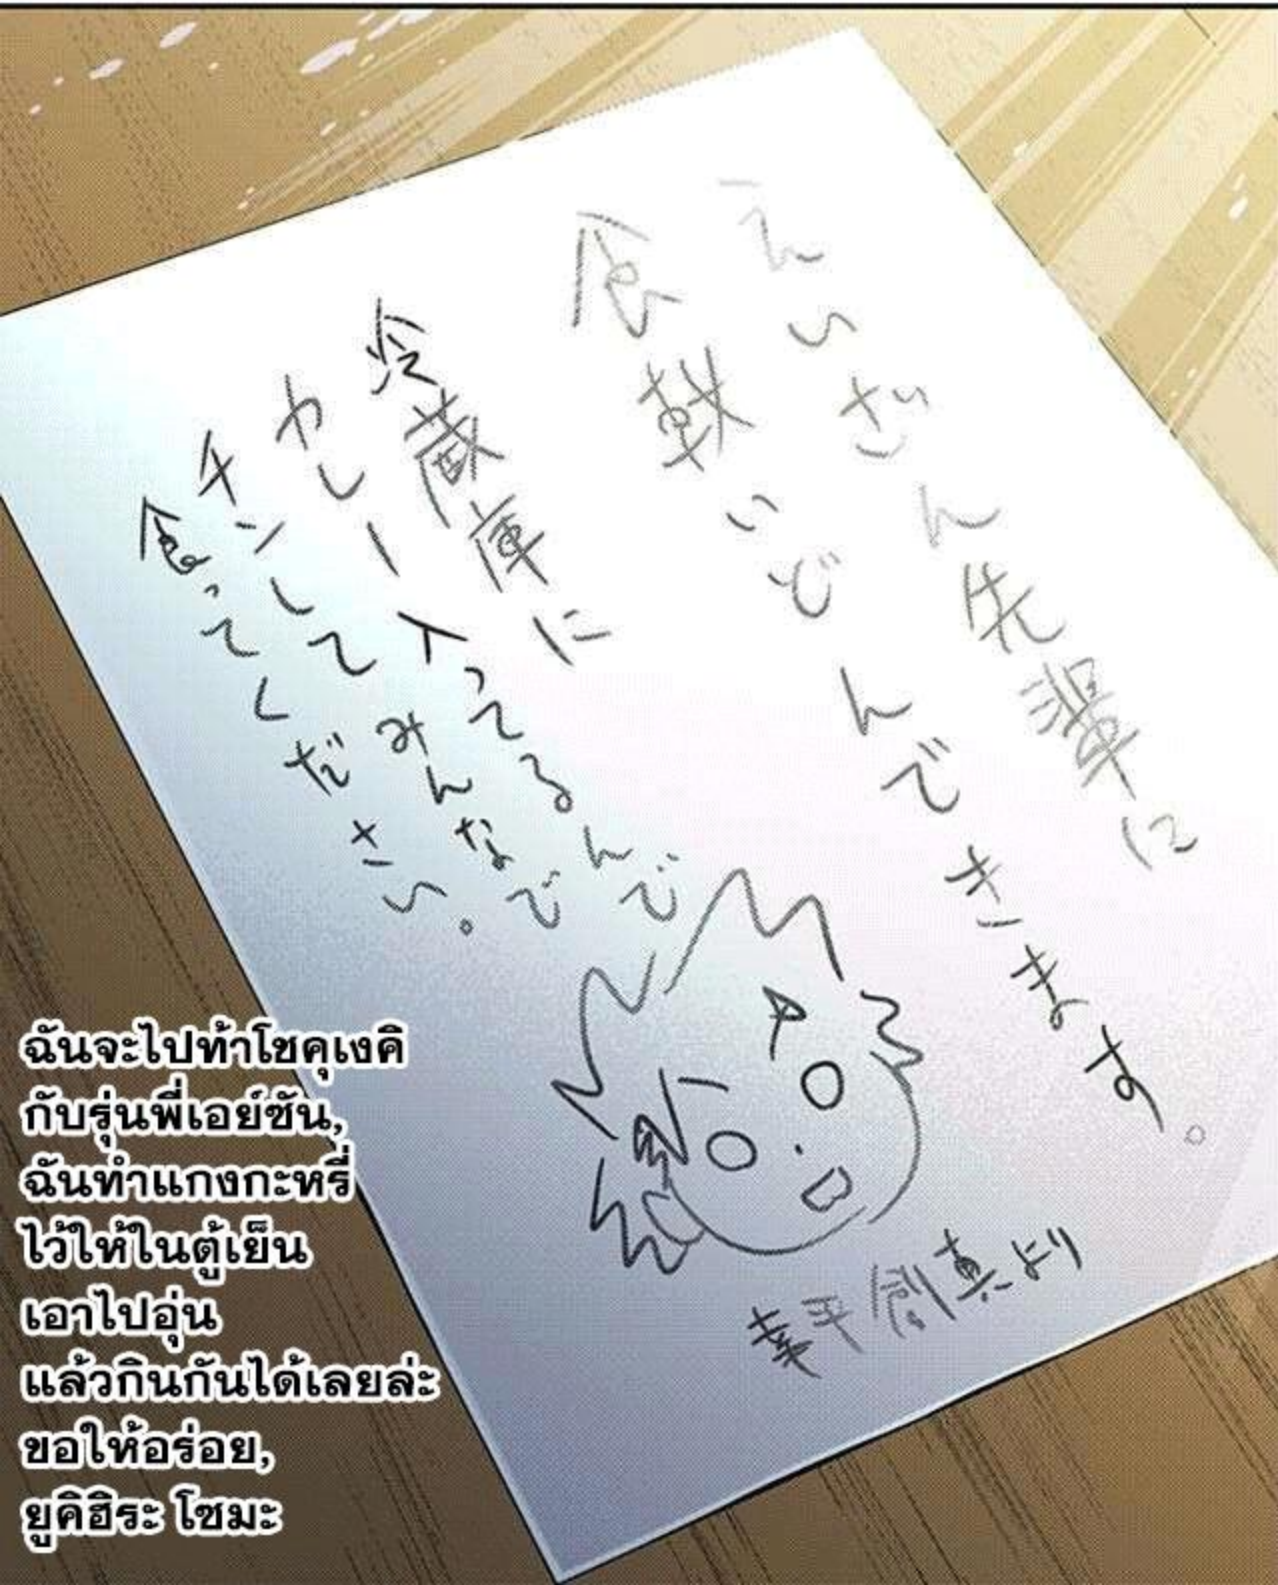 えいざん先輩に
食戟いどんできます。
冷蔵庫に
カレー入ってるんで
チンしてみんなで
食ってください。
幸平創真より
ฉันจะไปท้าโชคุเงคิ
กับรุ่นพี่เอย์ซัน,
ฉันทำแกงกะหรี่
ไว้ให้ในตู้เย็น
เอาไปอุ่น
แล้วกินกันได้เลยล่ะ
ขอให้อร่อย,
ยูคิฮิระ โซมะ